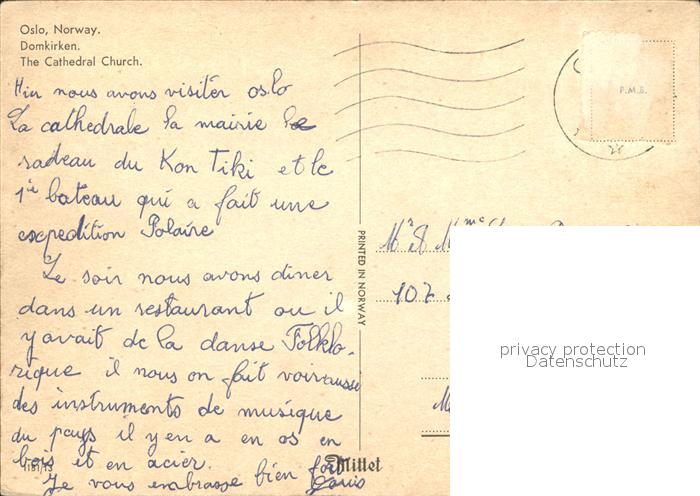 Oslo, Norway.
Domkirken.
The Cathedral Church.
Hin nous avons visiter oslo
La cathedrale la mairie le
radeau du Kon Tiki et le
1er bateau qui a fait une
expedition Polaire
Le soir nous avons diner
dans un restaurant ou il
y avait de la danse Folklo-
rique il nous on fait voir aussi
des instruments de musique
du pays il y en a en os en
bois et en acier.
Je vous embrasse bien fort
1151/13
Mittet
PRINTED IN NORWAY
P.M.B.
Mr & Mme
107
privacy protection
Datenschutz